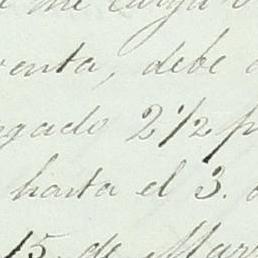 me carga
venta, debe
gado 2 1/2 p
hasta el 3.
15 de Mar